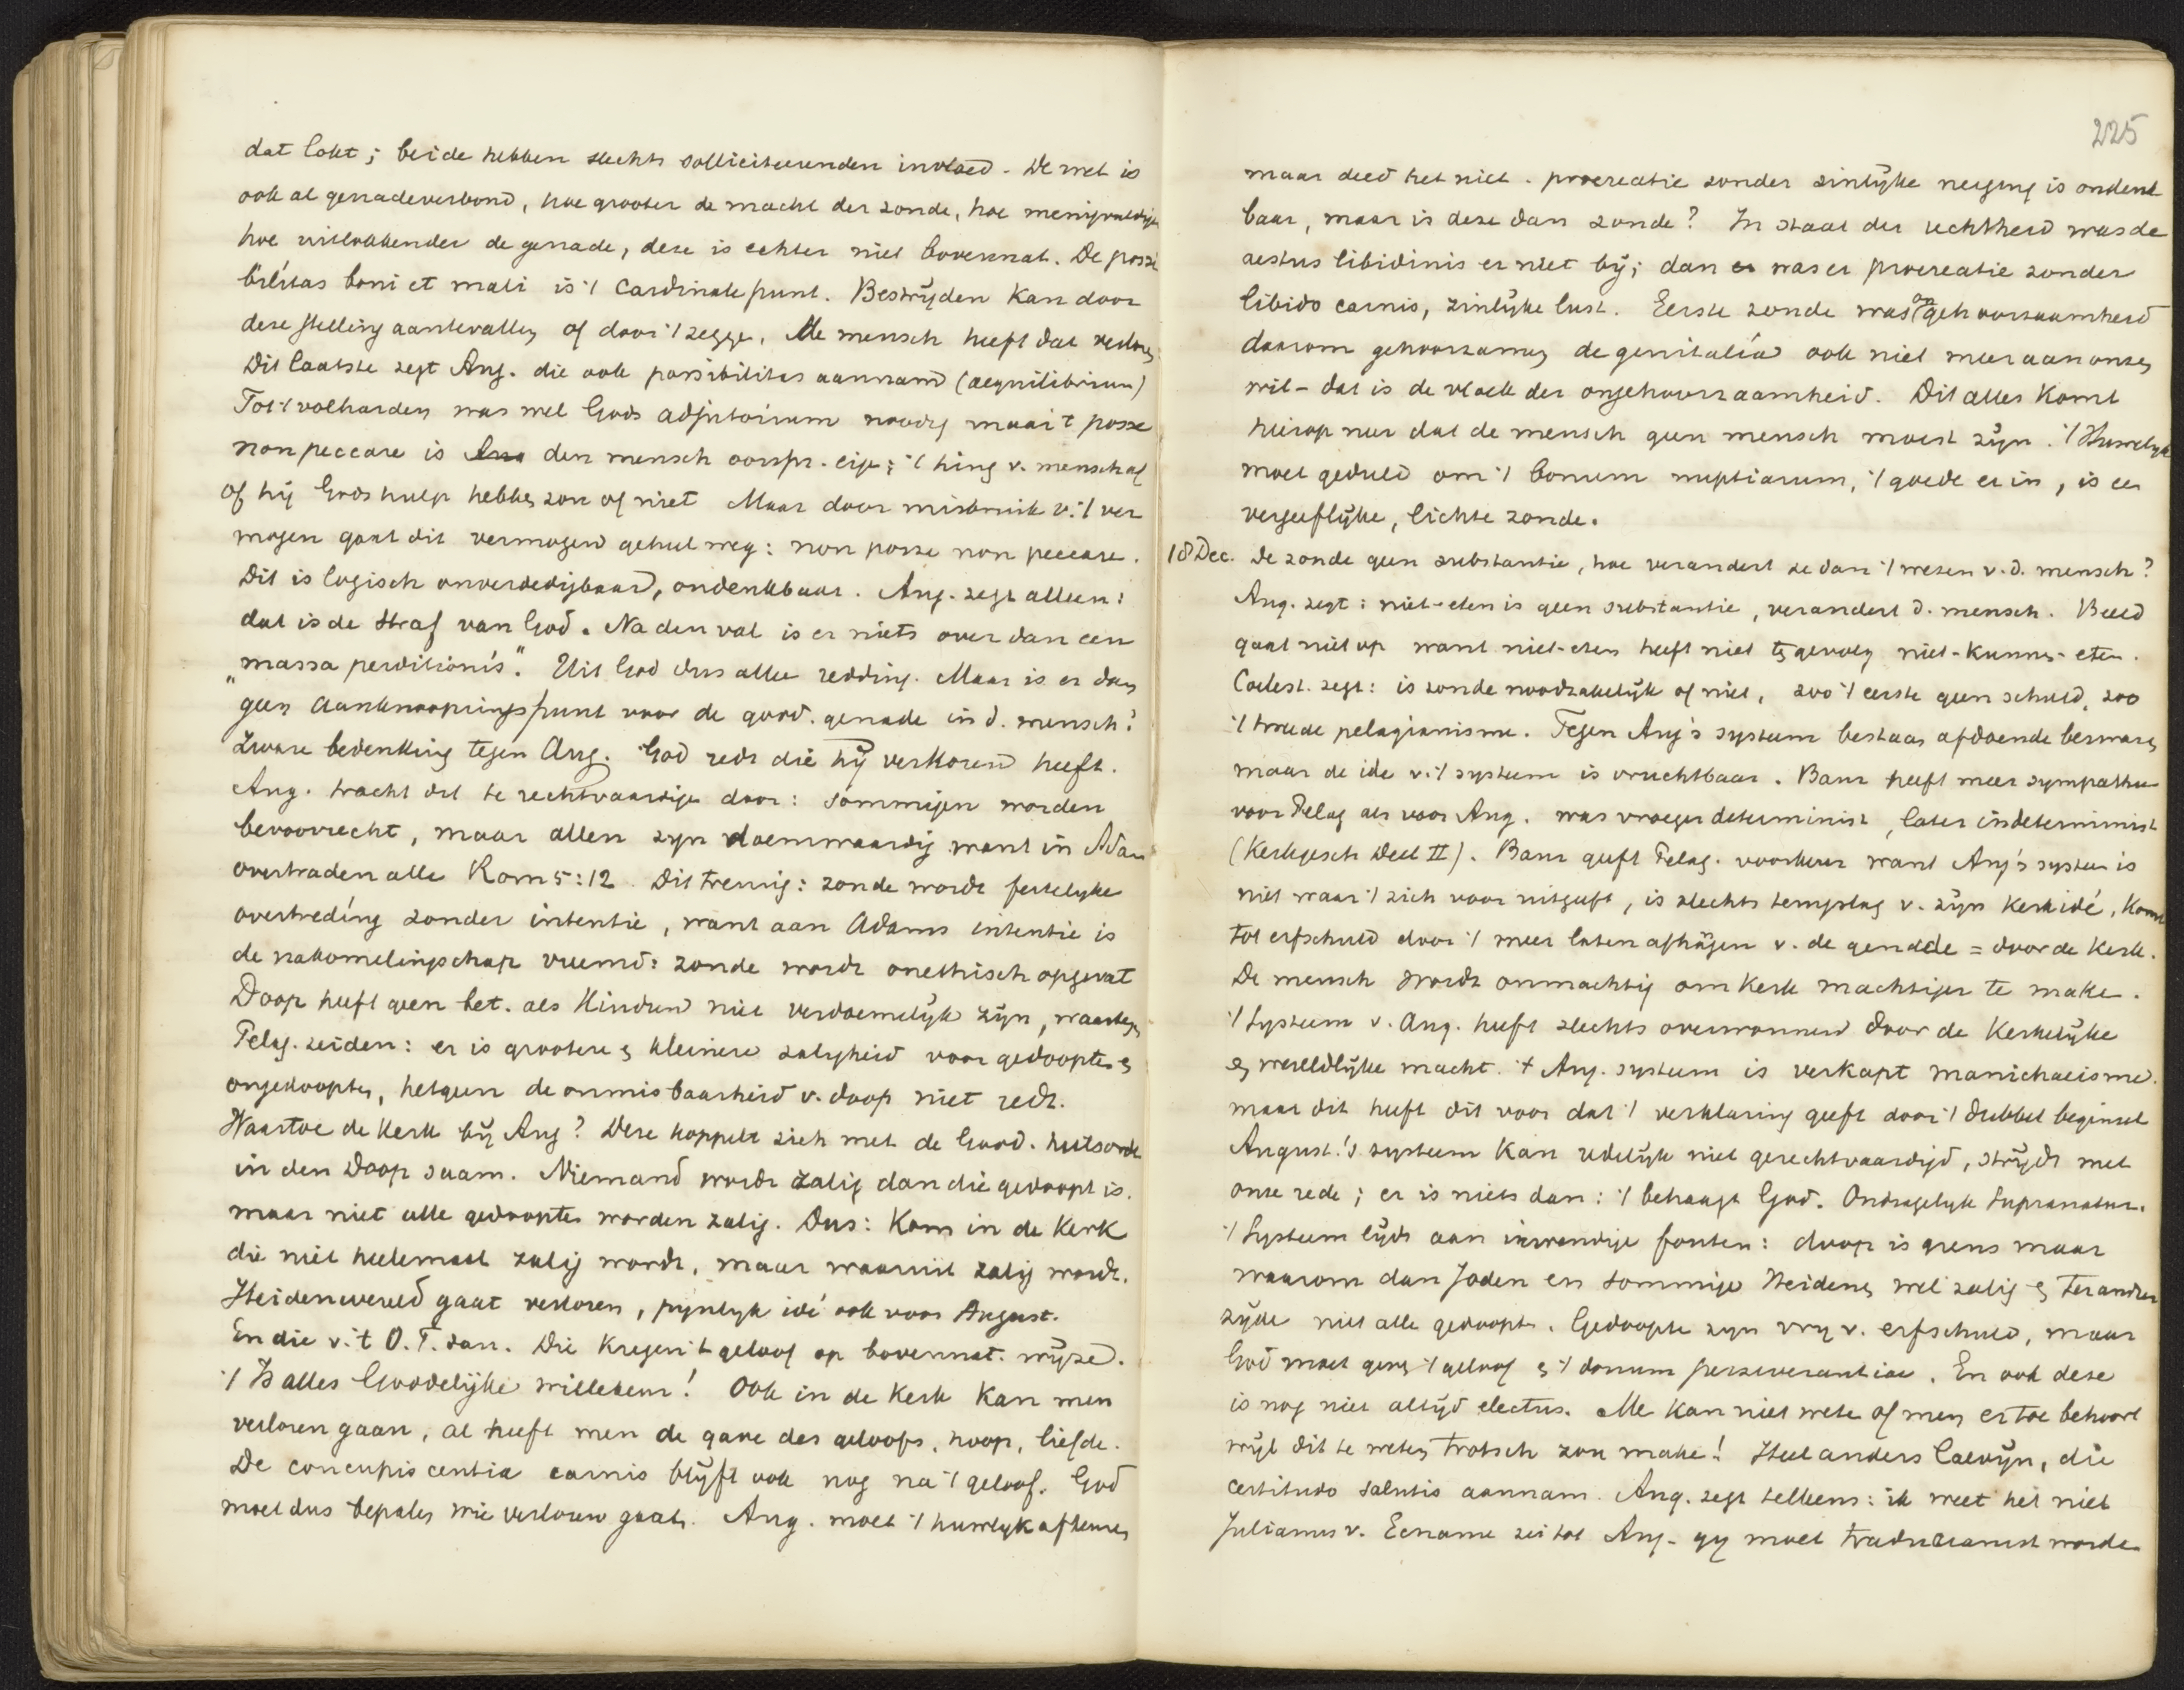 dat lokt; beide hebben slechts solliciteerenden invloed. De wet is
ook al genadeverbond, hoe grooter de macht der zonde, hoe menigvuldiger
hoe uitlokkender de genade, deze is echter niet bovennat. De possi
bilitas boni et mali is 't Cardinale punt. Bestrijden kan door
deze stelling aantevallen of door 't zeggen, de mensch heeft dat verloren.
Dit laatste zegt Aug. die ook possibilitas aannam (aequilibrium)
Tot 't volharden was wel Gods adjutorium noodig maar 't posse
non peccare is den mensch oorspr. eigen; 't hing v. mensch af
of hij Gods hulp hebben zou of niet Maar door misbruik v. 't ver
mogen gaat dit vermogen geheel weg: non posse non peccare.
Dit is logisch onverdedigbaar, ondenkbaar. Aug. zegt alleen:
dat is de straf van God. Na den val is er niets over dan een
"massa perditionis". Uit God dus alle redding. Maar is er dan
geen aanknoopingspunt voor de godd. genade in d. mensch?
Zware bedenking tegen Aug. God redt die hij verkoren heeft.
Aug. tracht dit te rechtvaardigen door: sommigen worden
bevoorrecht, maar allen zijn doemwaardig want in Adam
overtraden alle Rom 5:12 Dit treurig: zonde wordt feitelijke
overtreding zonder intentie, want aan Adams intentie is
de nakomelingschap vreemd: zonde wordt onethisch opgevat
Doop heeft geen bet. als kinderen niet verdoemelijk zijn, waartegen
Pelag. zeiden: er is grootere en kleinere zaligheid voor gedoopten en
ongedoopten, hetgeen de onmisbaarheid v. doop niet redt.
Waartoe de kerk bij Aug? Deze koppelt zich met de Godd. heilsorde
in den Doop saam. Niemand wordt zalig dan die gedoopt is.
maar niet alle gedoopten worden zalig. Dus: Kom in de Kerk
die niet heelemaal zalig wordt, maar waaruit zalig wordt.
Heidenwereld gaat verloren, pijnlijk idé ook voor August.
En die v. 't O.T. dan. Die kregen 't geloof op bovennat. wijze.
't Is alles Goddelijke willekeur! Ook in de Kerk kan men
verloren gaan, al heeft men de gave des geloofs, hoop, liefde.
De concupiscentia carnis blijft ook nog na 't geloof. God
moet dus bepalen wie verloren gaat. Aug. moet 't huwlijk afkeuren
225
maar deed het niet. procreatie zonder zinlijke neiging is ondenk
baar, maar is deze dan zonde? In staat der rechtheid was de
aestus libidinis er niet bij; dan was er procreatie zonder
libido carnis, zinlijke lust. Eerste zonde was ongehoorzaamheid
daarom gehoorzamen de genitalia ook niet meer aan onzen
wil - dat is de vloek der ongehoorzaamheid. Dit alles komt
hierop neer dat de mensch geen mensch moest zijn. 't Huwelijk
moet geduld om 't bonum nuptiarum, 't goede er in, is een
vergeeflijke, lichte zonde.
18 Dec. De zonde geen substantie, hoe verandert ze dan 't wezen v. d. mensch?
Aug. zegt: niet-eten is geen substantie, verandert d. mensch. Beeld
gaat niet op want niet-eten heeft niet gevolg niet-kunnen-eten.
Coelest. zegt: is zonde noodzakelijk of niet, zoo 't eerste geen schuld, zoo
't tweede pelagianisme. Tegen Aug's systeem bestaan afdoende bezwaren
maar de idé v. 't systeem is vruchtbaar. Baur heeft meer sympathie
voor Pelag als voor Aug. was vroeger determinist, later indeterminist
(Kerkgesch Deel II). Baur geeft Pelag. voorkeur want Aug's systeem is
niet waar 't zich voor uitgeeft, is slechts v. zijn kerkidé, komt
tot erfschuld door 't meer laten afhangen v. de genade = door de kerk.
De mensch wordt onmachtig om kerk machtiger te maken.
't Systeem v. Aug. heeft slechts overwonnen door de kerkelijke
en wereldlijke macht. † Aug. systeem is verkapt manichaeisme.
maar dit heeft dit voor dat 't verklaring geeft door 't dubbel beginsel
August.'s systeem kan redelijk niet gerechtvaardigd, strijdt met
onze rede; er is niets dan: 't behaagt God. Ondragelijk Supranatur.
't Systeem lijdt aan inwendige fouten: doop is grens maar
waarom dan Joden en sommige Heidenen wel zalig en ter andere
zijde niet alle gedoopten. Gedoopte zijn vrij v. erfschuld, maar
God moet geven 't geloof en 't donum perseverantiae. En ook deze
is nog niet altijd electus. Me kan niet weten of men er toe behoort
wijl dit te weten trotsch zou maken! Heel anders Calvijn, die
certitudo salutis aannam. Aug. zegt telkens: ik weet het niet
Julianus v. Eclanum zei tot Aug. gij moet traducianist worden